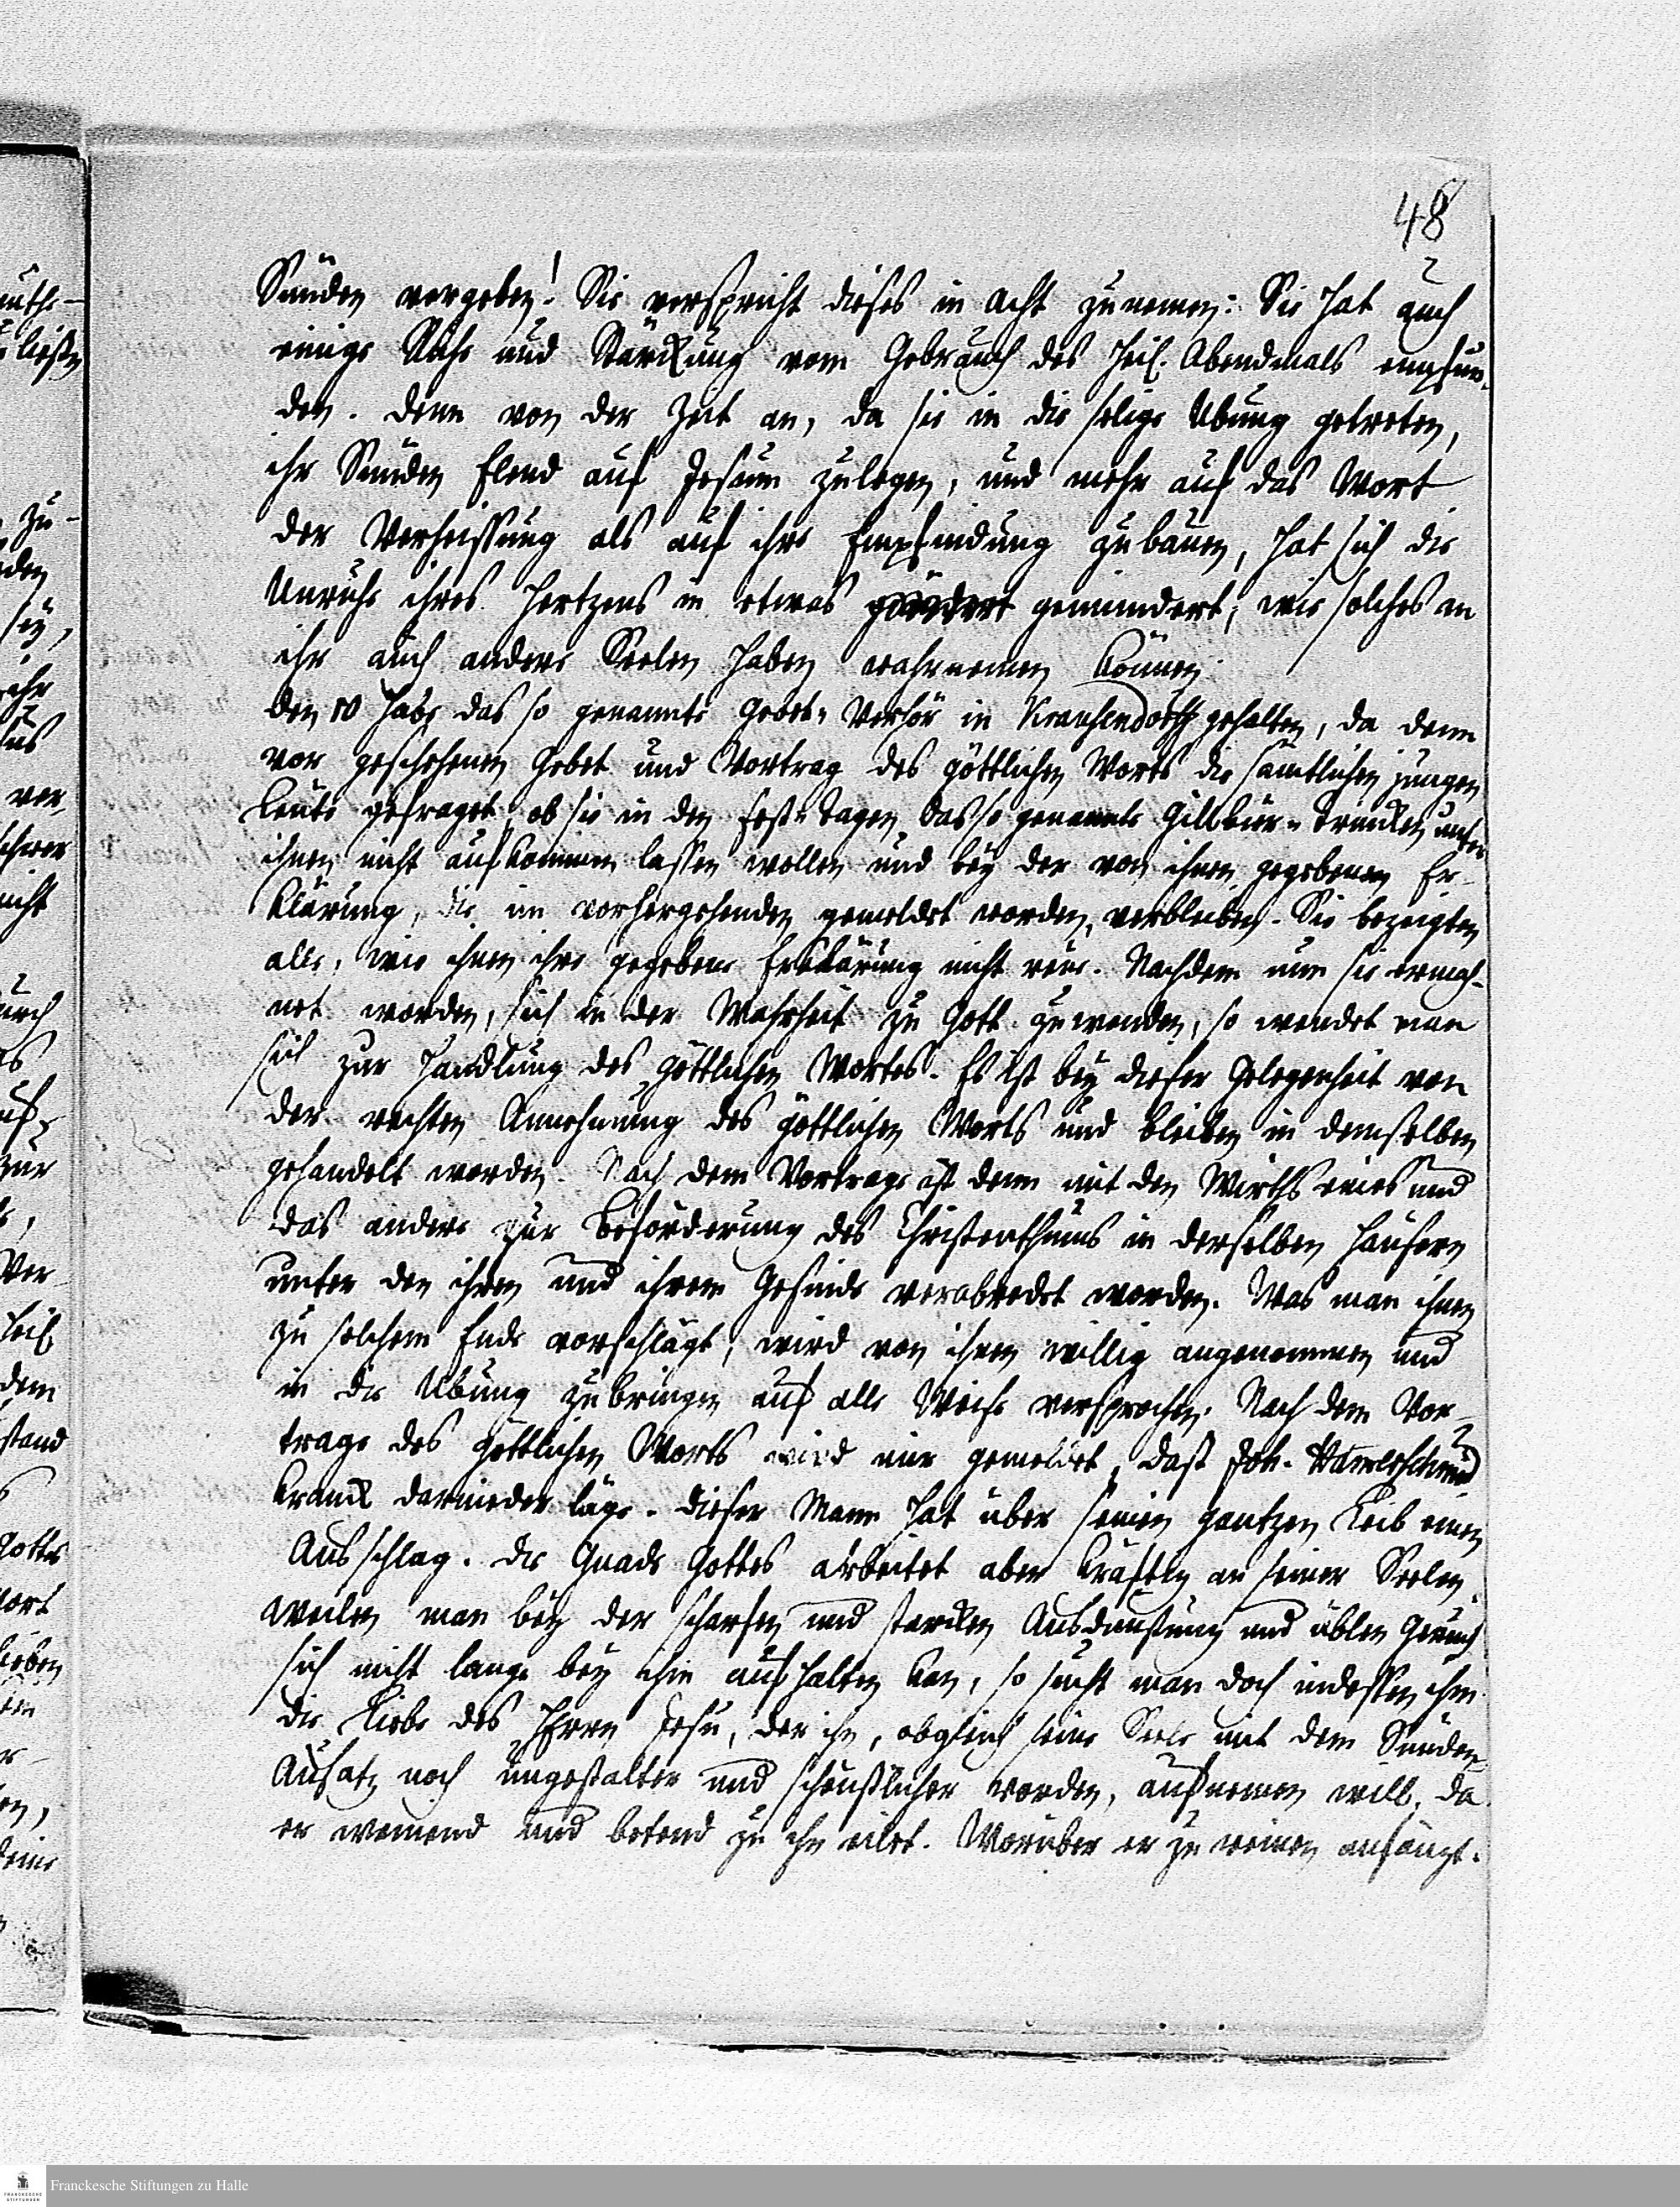 48
Sünden vergeben! Sie verspricht dieses in acht zu nemen: Sie hat auch
einige Ruhe und Stärckung vom Gebrauch des heil. Abendmals empfun-
den. Denn von der Zeit an, da sie in die selige Ubung getreten,
ihr Sünden Elend auf Jesum zulegen, und mehr auf das Wort
der Verheissung als auf ihre Empfindung zubauen, hat sich die
Unruhe ihres Hertzens in etwas gemindert, wie solches an
ihr auch andere Seelen haben wahrnemen können.
Den 10 habe das so genannte Gebet-Verhör in gehalten, da denn
vor geschehenen Gebet und Vortrag des göttlichen Worts die sämtlichen jungen
Leute gefraget, ob sie in den Fest-Tagen das so genannte Gillbier-Trincken unter
ihnen nicht aufkommen lassen wollen und bey der von ihnen gegebenen Er-
klärung, die im vorhergehenden gemeldet worden, verbleiben. Sie bezeigten
alle, wie ihnen ihre gegebene Erklärung nicht reue. Nachdem nun sie ermah-
net worden, sich in der Wahrheit zu Gott zuwenden, so wendet man
sich zur Handlung des göttlichen Wortes. Es ist bey dieser Gelegenheit von
der rechten Annehmung des göttlichen Worts und bleiben in demselben
gehandelt worden. Nach dem Vortrage ist denn mit den Wirths eines und
das andere zur Beförderung des Christenthums in derselben Häusern
unter den ihren und ihrem Gesinde verabredet worden. Was man ihnen
zu solchem Ende vorschlägt, wird von ihnen willig angenommen und
in die Ubung zubringen auf alle Weise versprochen. Nach dem Vor-
trage des göttlichen Worts wird mir gemeldet, daß Joh.
kranck darnieder läge. Dieser Mann hat über seinen gantzen Leib einen
Ausschlag. Die Gnade Gottes arbeitet aber kräftig an seiner Seelen
weilen man bey der scharfen und starcken Ausdünstung und üblen Geruch
sich nicht lange bey ihm aufhalten kan, so sucht man doch indessen ihm
die Liebe des HErrn Jesu, der ihn, obgleich seine Seele mit dem Sünden
Aussatz noch ungestalter und scheußlicher worden, aufnemen will, da
er weinend und betend zu ihn eilet. Worüber er zu weinen anfängt.
Franckesche Stiftungen zu Halle